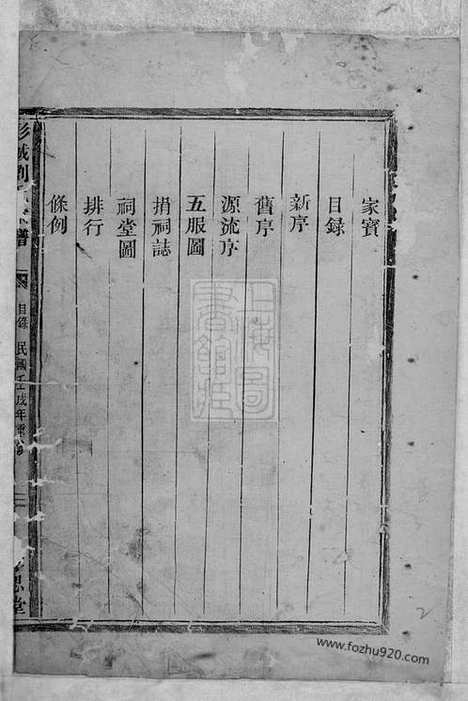 家寶
目録
新序
舊序
源流序
五服圖
捐祠誌
祠堂圖
排行
條例
彭城劉
譜
目録
民國壬戌年重
思堂
上海圖書館藏
2
www.fozhu920.com